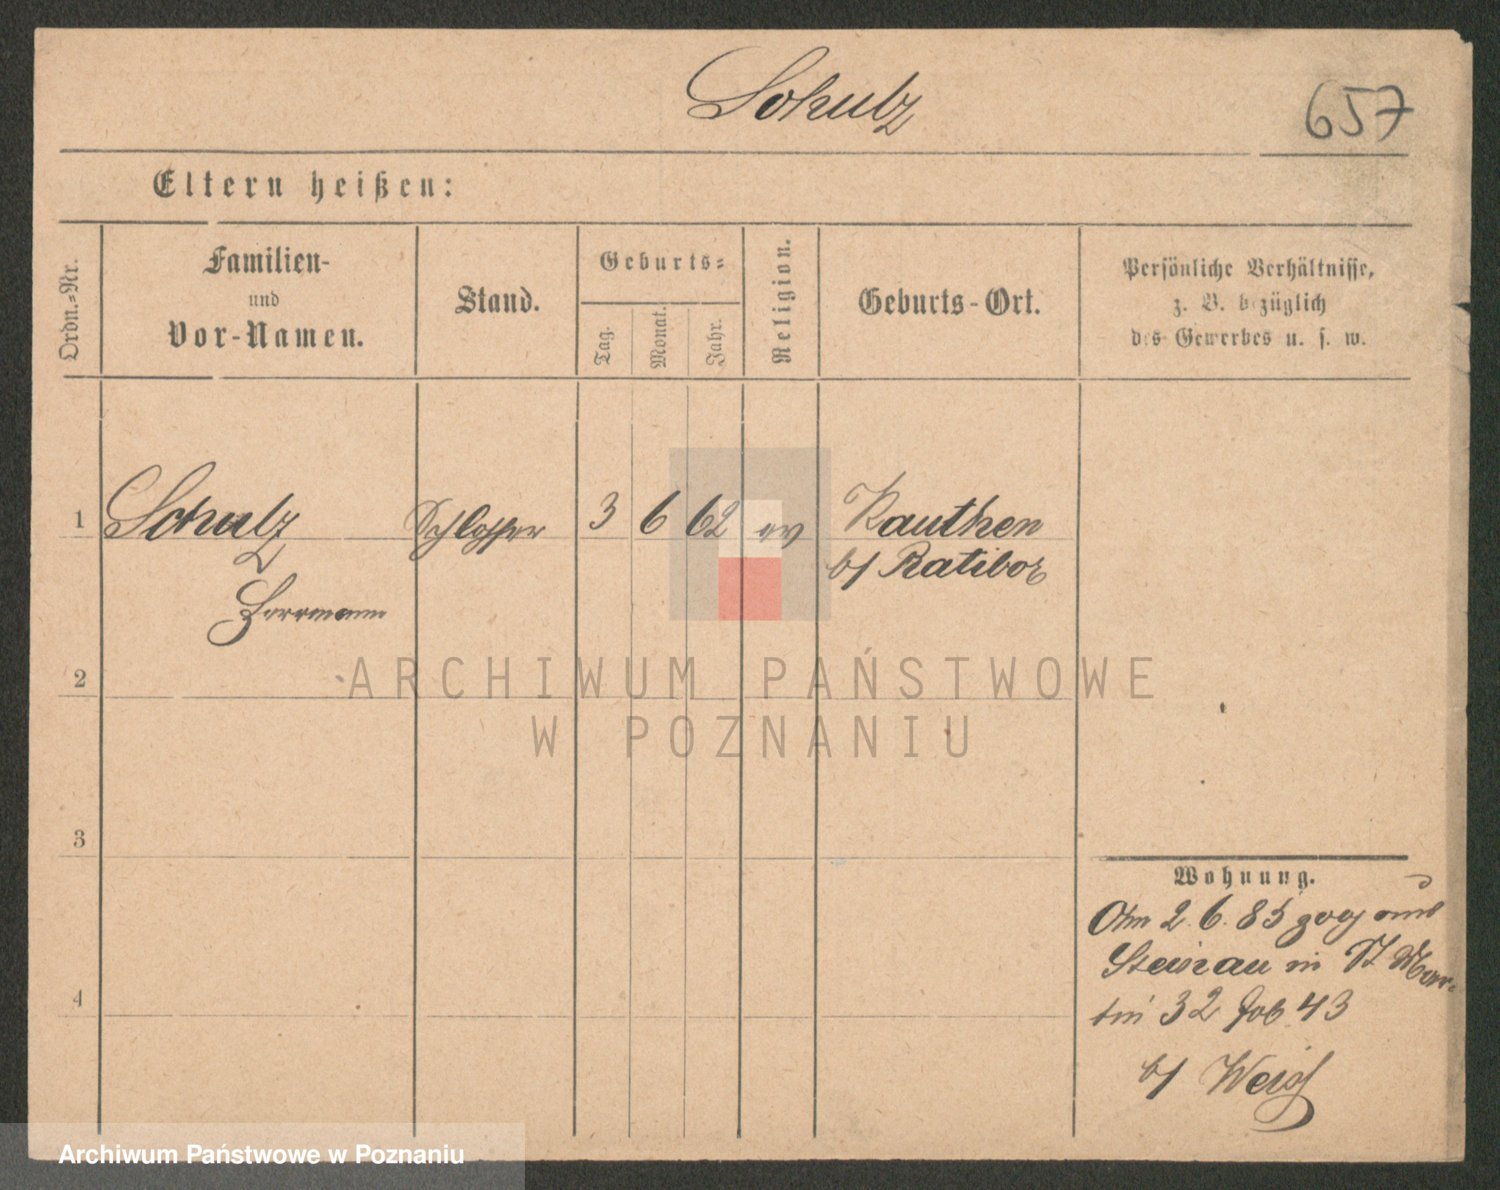 Schulz
657
Eltern heißen:
Ordn.-Nr.
Familien-
und
Vor-Namen.
Stand.
Geburts-
Tag.
Monat.
Jahr.
Religion.
Geburts-Ort.
Persönliche Verhältnisse,
z. B. bezüglich
des Gewerbes u. s. w.
1
Schulz
Schlosser
3
6
62
ev
Rauthen
b/ Ratibor
Herrmann
2
ARCHIWUM PAŃSTWOWE
W POZNANIU
3
Wohnung.
2. 6. 85 zog aus
Steinau in St Mar-
tin 32 43
4
b/
Archiwum Państwowe w Poznaniu